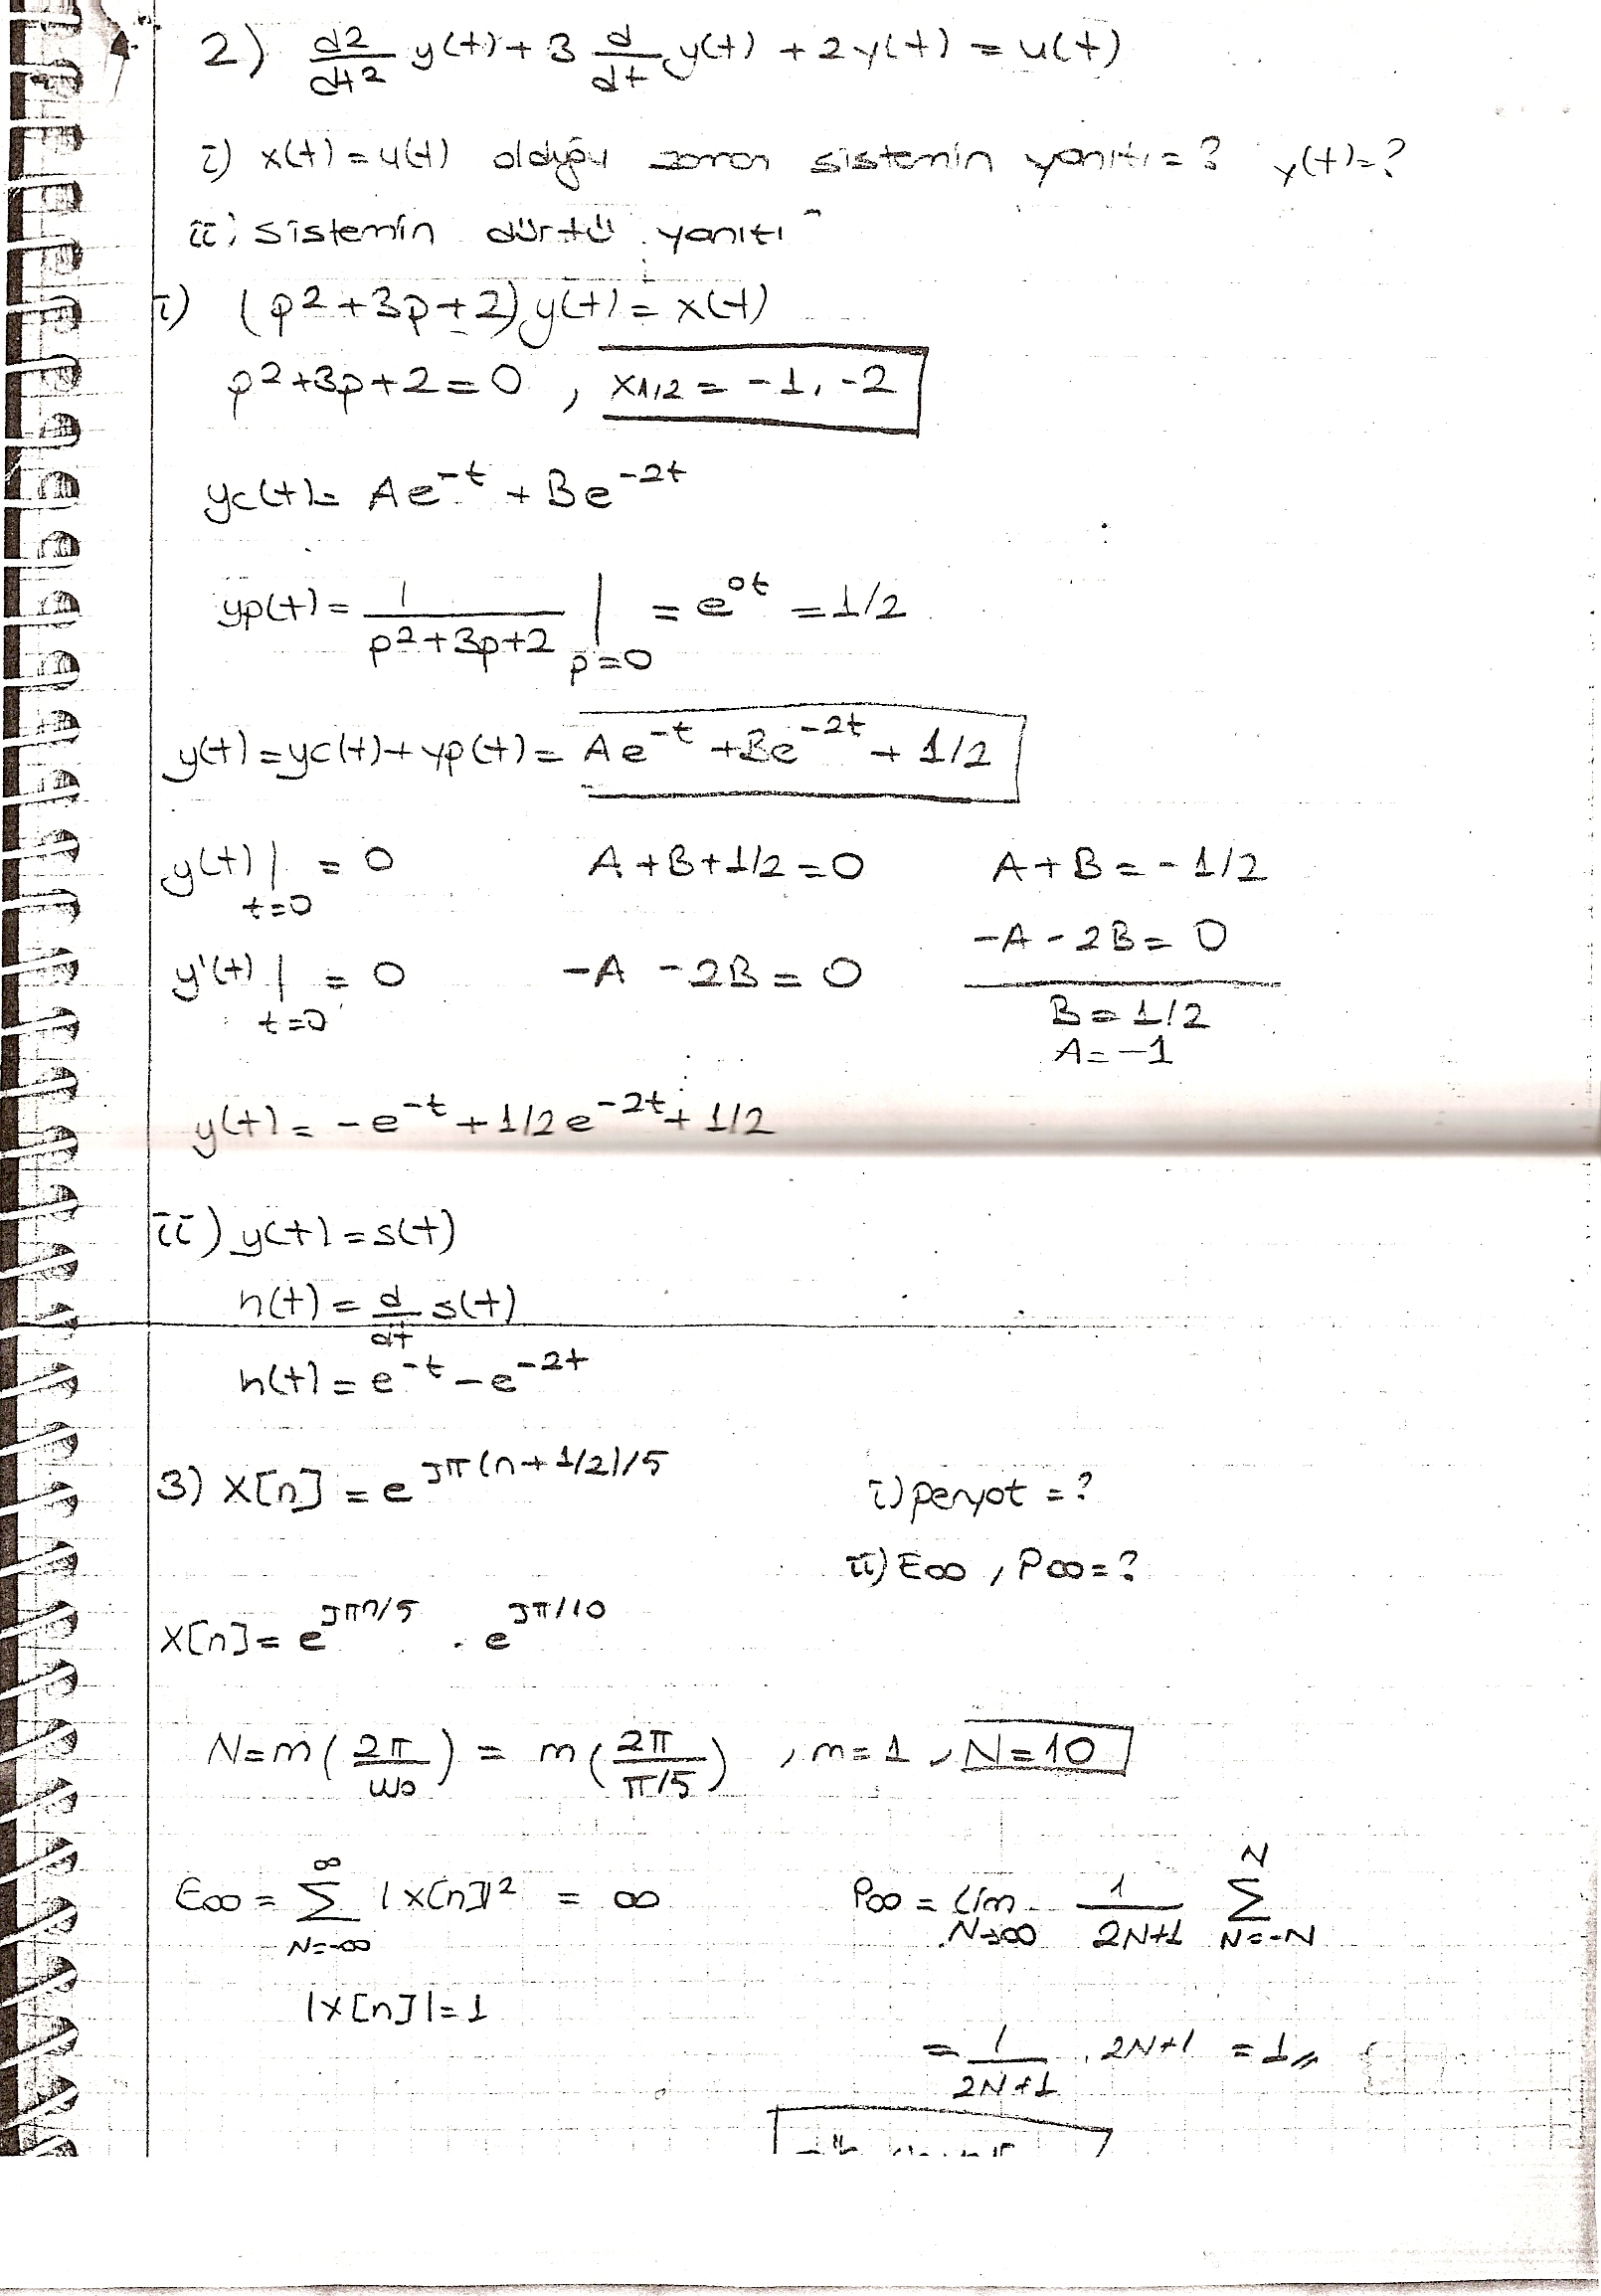 2) d2/dt2 y(t) + 3 d/dt y(t) + 2y(t) = u(t)
i) x(t) = u(t) olduğu zaman sistemin yanıtı = ? y(t) = ?
ii) sistemin dürtü yanıtı
i) (p2 + 3p + 2) y(t) = x(t)
p2 + 3p + 2 = 0 , x1,2 = -1, -2
yc(t) = Ae^-t + Be^-2t
yp(t) = 1/(p2 + 3p + 2) | p=0 = e^0t = 1/2
y(t) = yc(t) + yp(t) = Ae^-t + Be^-2t + 1/2
y(t) | t=0 = 0 A + B + 1/2 = 0 A + B = -1/2
-A - 2B = 0
y'(t) | t=0 = 0 -A - 2B = 0
B = 1/2
A = -1
y(t) = -e^-t + 1/2 e^-2t + 1/2
ii) y(t) = s(t)
h(t) = d/dt s(t)
h(t) = e^-t - e^-2t
3) X[n] = e^Jπ(n + 1/2)/5 i) peryot = ?
ii) E∞ , P∞ = ?
X[n] = e^Jπn/5 . e^Jπ/10
N = m (2π/ω0) = m (2π/(π/5)) , m = 1 , N = 10
E∞ = ∞ Σ N=-∞ |X[n]|2 = ∞ P∞ = lim N→∞ 1/(2N+1) N Σ N=-N
|X[n]| = 1
= 1/(2N+1) . 2N+1 = 1